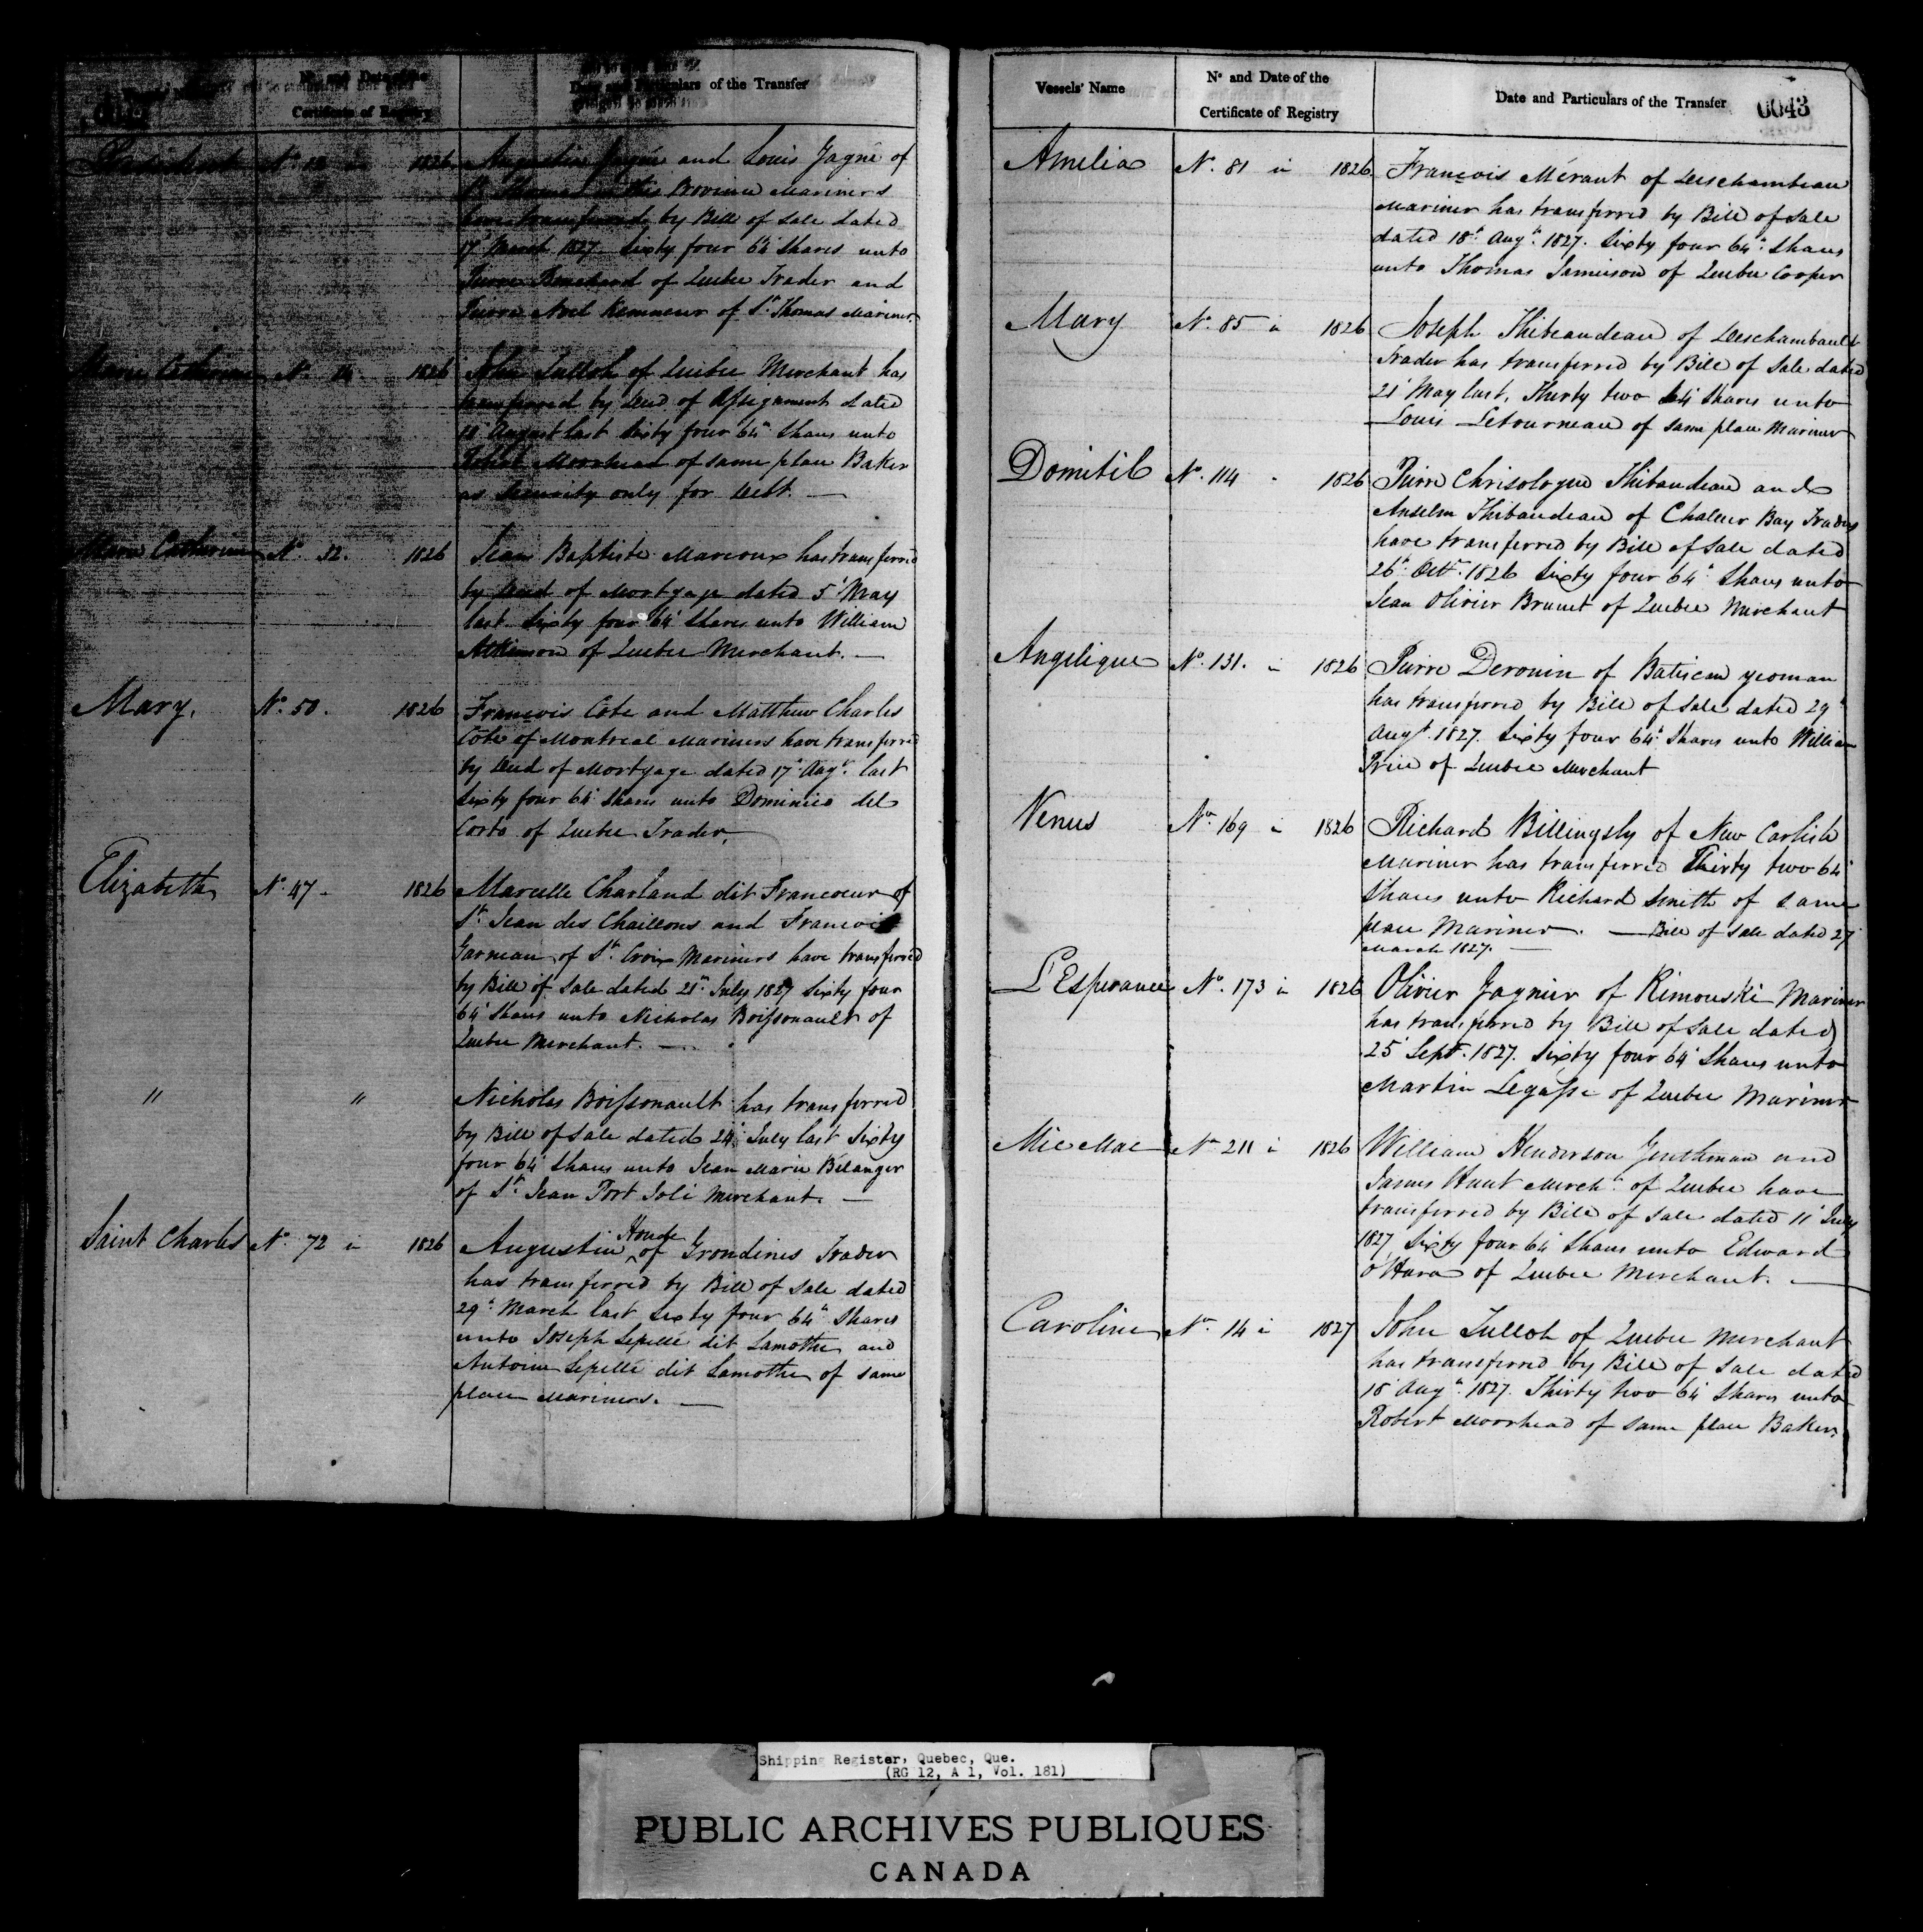 Nº and Date of the
Certificate of Registry
Date and Particulars of the Transfer
Nº 12 1826 Augustin Gagné and Louis Gagné of
St Thomas in this Province Mariners
have transferred by Bill of Sale dated
17th March 1827 Sixty four 64th Shares unto
Pierre Bouchard of Quebec Trader and
Pierre Noel of St Thomas Mariner.
Marie Catherine Nº 14 1826 John Tulloh of Quebec Merchant has
transferred by Deed of Assignment dated
18th August last Sixty four 64th Shares unto
Robert Moorhead of same place Baker
as Security only for Debt. —
Marie Catherine Nº 32. 1826 Jean Baptiste Marcoux has transferred
by Deed of Mortgage dated 5th May
last Sixty four 64th Shares unto William
Atkinson of Quebec Merchant. —
Mary. Nº 50. 1826 François Cote and Matthew Charles
Côte of Montreal Mariners have transferred
by Deed of Mortgage dated 17th Augt. last
Sixty four 64th Shares unto Dominico del
Corto of Quebec Trader,
Elizabeth Nº 47 - 1826 Marcelle Charland dit Francoeur of
St. Jean des Chaillons and Francois
Garneau of St. Croix Mariners have transferred
by Bill of Sale dated 21st July 1827 Sixty four
64th Shares unto Nicholas Boissonault of
Quebec Merchant. —
" " Nicholas Boissonault has transferred
by Bill of Sale dated 24th July last Sixty
four 64th Shares unto Jean Marie Belanger
of St. Jean Port Joli Merchant. —
Saint Charles Nº 72 in 1826 Augustin Houde of Grondines Trader
has transferred by Bill of Sale dated
29th March last Sixty four 64th Shares
unto Joseph Lepellé dit Lamothe and
Antoine Lepellé dit Lamothe of same
place Mariners. —
Vessels' Name
Nº and Date of the
Certificate of Registry
Date and Particulars of the Transfer
0043
Amelia Nº 81 in 1826 François Mérant of Deschambeau
Mariner has transferred by Bill of Sale
dated 18th Augt. 1827. Sixty four 64th Shares
unto Thomas Jamieson of Quebec Cooper
Mary Nº 85 in 1826 Joseph Thibeaudeau of Deschambault
Trader has transferred by Bill of Sale dated
21st May last, Thirty two 64th Shares unto
Louis Letourneau of same place Mariner
Domitil Nº 114 - 1826 Pierre Chrisologue Thibaudeau and
Anselm Thibaudeau of Chaleur Bay Traders
have transferred by Bill of Sale dated
26th Octr. 1826 Sixty four 64th Shares unto
Jean Olivier Brunet of Quebec Merchant
Angelique Nº 131. in 1826 Pierre Derouin of Batiscan yeoman
has transferred by Bill of Sale dated 29th
Augt. 1827. Sixty four 64th Shares unto William
Price of Quebec Merchant
Venus Nº 169 in 1826 Richard Billingsly of New Carlisle
Mariner has transferred Thirty two 64th
Shares unto Richard Smith of same
place Mariner. — Bill of Sale dated 27th
March 1827. —
L'Esperance Nº 173 in 1826 Olivier Gagnier of Rimouski Mariner
has transferred by Bill of Sale dated
25th Sept. 1827. Sixty four 64th Shares unto
Martin Legasse of Quebec Mariner
Mic Mac Nº 211 in 1826 William Henderson Gentleman and
James Hunt Mercht. of Quebec have
transferred by Bill of Sale dated 11th July
1827 Sixty four 64th Shares unto Edward
O'Hara of Quebec Merchant. —
Caroline Nº 14 in 1827 John Tulloh of Quebec Merchant
has transferred by Bill of Sale dated
18th Augt. 1827. Thirty two 64th Shares unto
Robert Moorhead of same place Baker.
Shipping Register, Quebec, Que.
(RG 12, A 1, Vol. 181)
PUBLIC ARCHIVES PUBLIQUES
CANADA